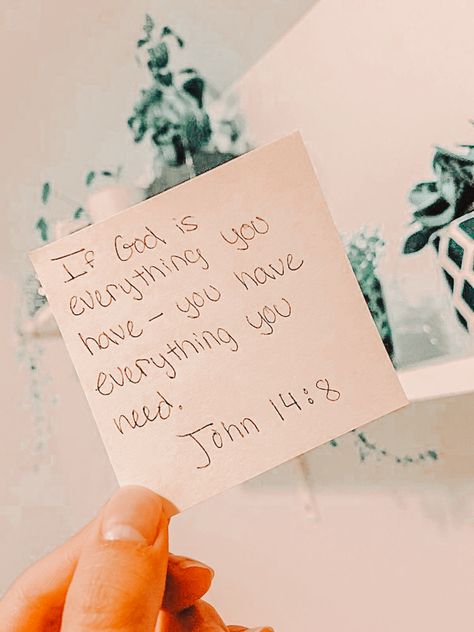 If God is
everything you
have - you have
everything you
need.
John 14:8